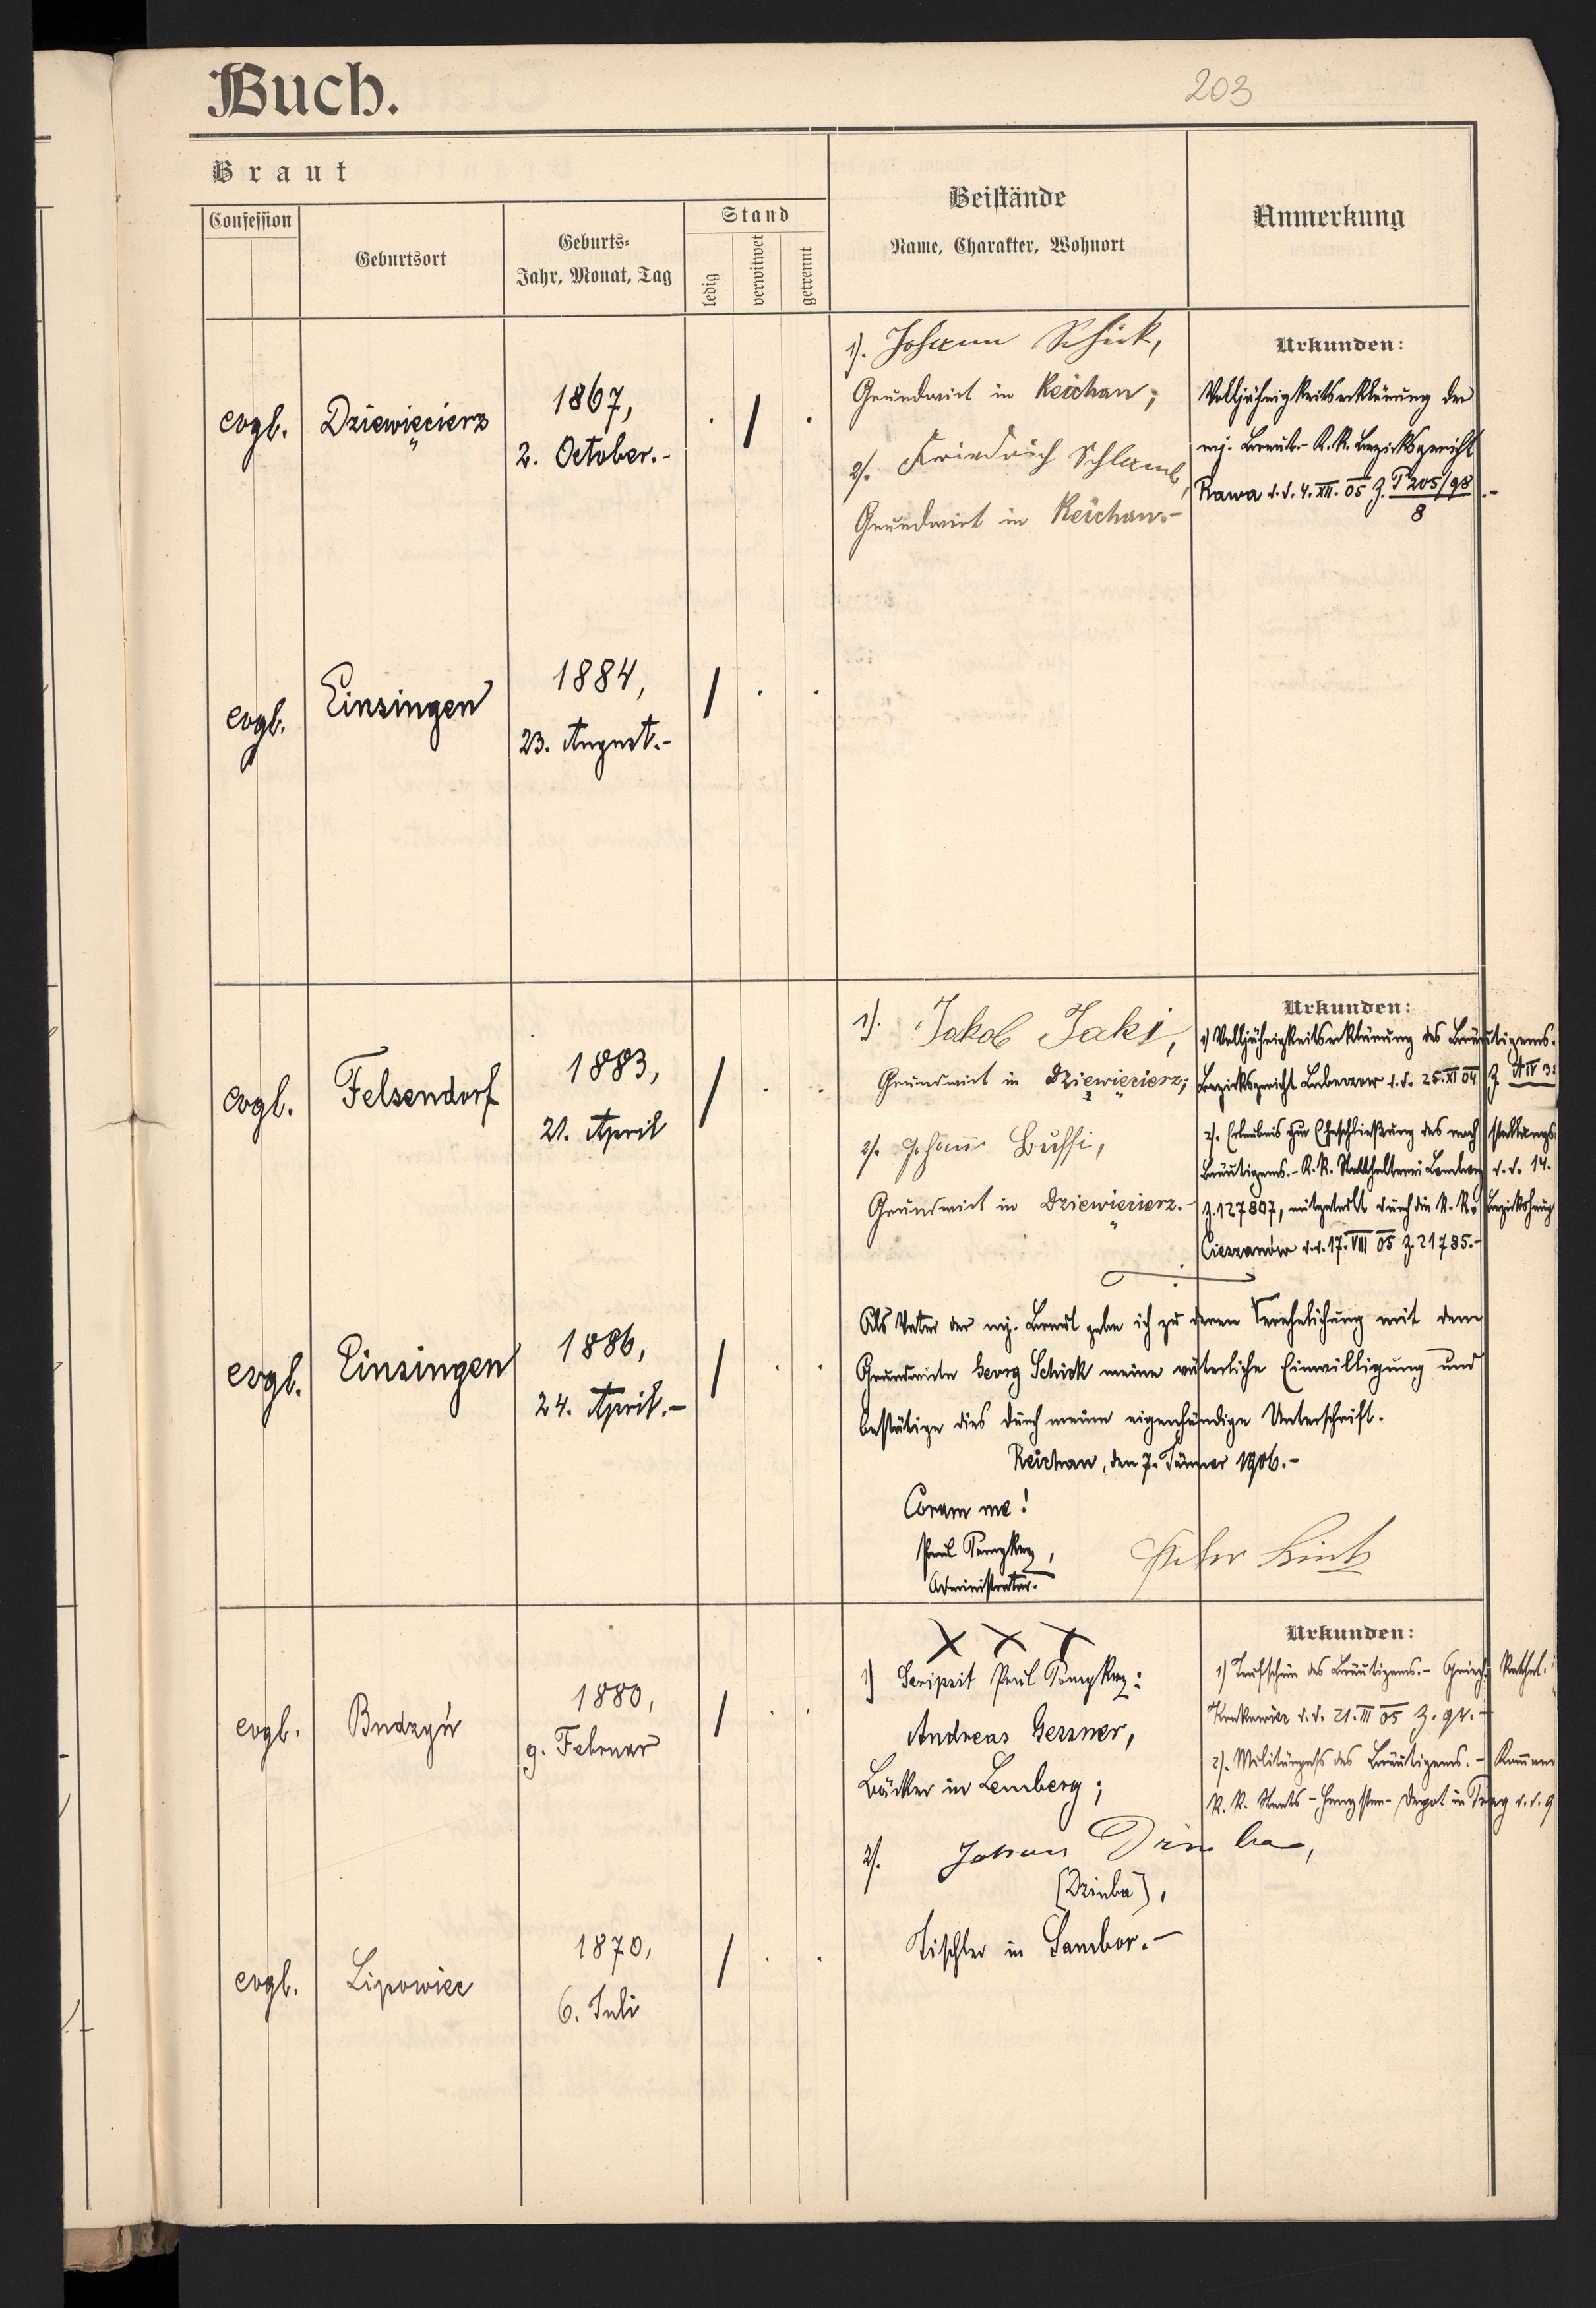 Buch.
203
Braut
Confession
Geburtsort
Geburts-
Jahr, Monat, Tag
Stand
ledig
verwitwet
getrennt
Beistände
Name, Charakter, Wohnort
Anmerkung
evgl.
Dziewięcierz
1867,
2. October.-
1). Johann Schick,
Grundwirt in Reichau;
2). Friedrich Schlamb,
Grundwirt in Reichau.-
Urkunden:
Volljährigkeitserklärung der
mj. Braut.- K.K. Bezirksgericht
Rawa d.d. 4. XII. 05 Z. P 205/98
8
evgl.
Einsingen
1884,
23. August.-
evgl.
Felsendorf
1883,
21. April
1). Jakob Jaki,
Grundwirt in Dziewięcierz;
2). Johann Buffi,
Grundwirt in Dziewięcierz.-
Urkunden:
1) Volljährigkeitserklärung des Bräutigams.-
Bezirksgericht Lubaczow d.d. 25. XI 04 Z. A IV 3
2). Erlaubnis zur Eheschließung des noch stellungs
Bräutigams.- K.K. Statthalterei Lemberg d.d. 14.
Z. 127807, mitgeteilt durch die K.K. Bezirkshaup
Cieszanów d.d. 17. VIII 05 Z. 21785.-
evgl.
Einsingen
1886,
24. April.-
Als Vater der mj. Braut gebe ich zu deren Verehelichung mit dem
Grundwirte Georg Schick meine väterliche Einwilligung und
bestätige dies durch meine eigenhändige Unterschrift.
Reichau, den 7. Jänner 1906.-
Coram me!
Paul
Administrator.-
evgl.
Budzyń
1880,
9. Februar
X X X
1) Scripsit Paul
Andreas Gessner,
Bäcker in Lemberg;
2). Johann
(Dzinba),
Tischler in Sambor.-
Urkunden:
1) Taufschein des Bräutigams.- Griech. Kathol.
Krakowiec d.d. 21. III 05 Z. 94.-
2). Militärpass des Bräutigams.-
K.K. Staats-Hengsten-Depot in Prag d.d. 9
evgl.
Lipowiec
1870,
6. Juli